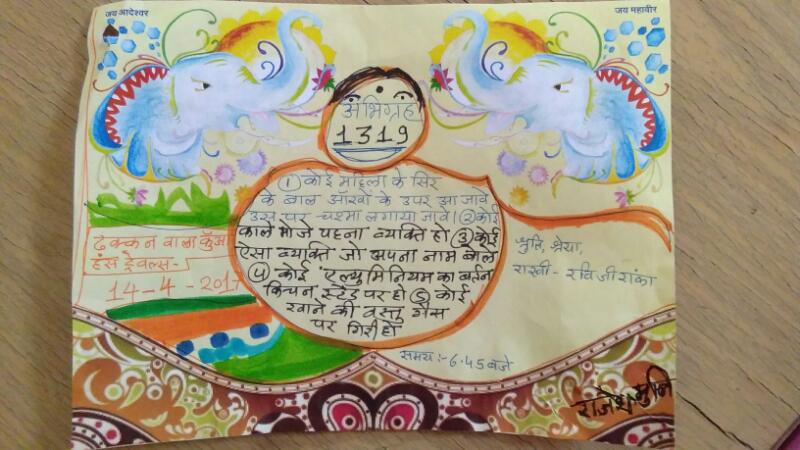 जय आदेश्वर
जय महावीर
अभिग्रह
1319
① कोई महिला के सिर
के बाल आँखों के उपर आ जावे
उस पर चश्मा लगाया जावे। ② कोई
काले मोजे पहना व्यक्ति हो ③ कोई
ऐसा व्यक्ति जो अपना नाम बोले
④ कोई एल्युमिनियम का बर्तन
किचन स्टैंड पर हो ⑤ कोई
खाने की वस्तु गैस
पर गिरी हो
ढक्कन वाला कुँआ
हंस ट्रेवल्स-
14-4-2017
श्रुति, श्रेया,
राखी - रवि जी रांका
समय:-6.45 बजे
राजेश मुनि